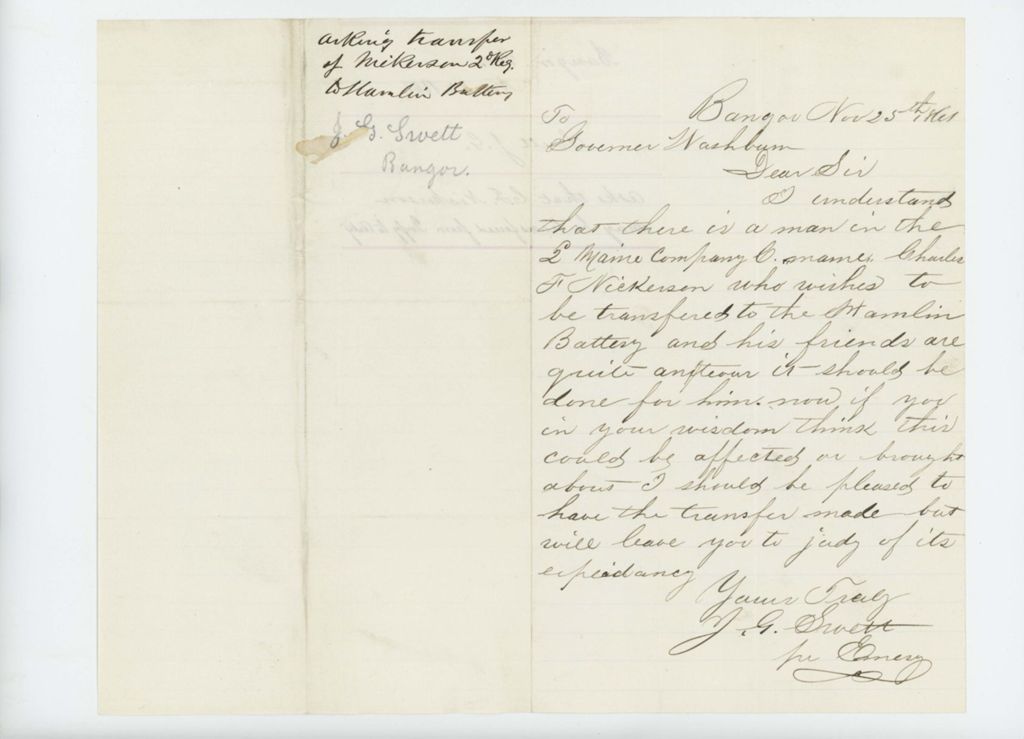 asking transfer
of Nickerson 2d Reg.
to Hamlin Battery
J. G. Swett
Bangor.
Bangor Nov 25th 1861
To
Governer Washburn
Dear Sir
I understand
that there is a man in the
2 Maine Company C. name, Charles
F Nickerson who wishes to
be transfered to the Hamlin
Battery and his friends are
quite anxteour it should be
done for him. now if you
in your wisdom think this
could be affected or brought
about I should be pleased to
have the transfer made but
will leave you to judg of its
expeidancy
Yours Truly
J. G. Swett
per Emery